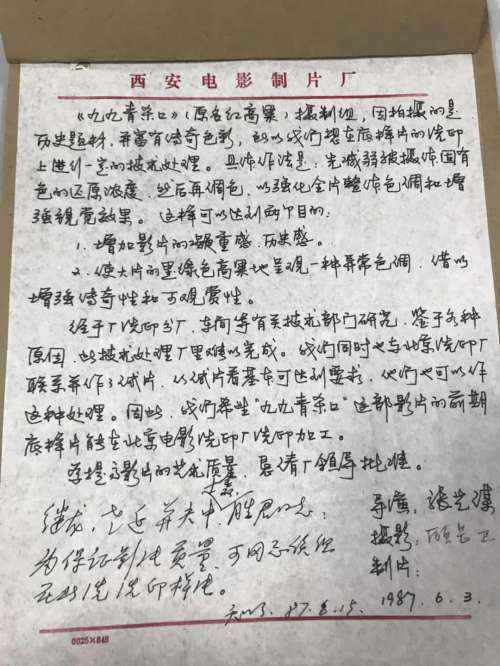 西安电影制片厂
《九九青杀口》(原名红高粱)摄制组,因拍摄的是
历史题材,并富有传奇色彩,所以我们想在底样片的洗印
上进行一定的技术处理。具体作法是,先减弱被摄体固有
色的还原浓度,然后再调色,以强化全片整体色调和增
强视觉效果。这样可以达到两个目的:
1.增加影片的凝重感、历史感。
2.使大片的墨绿色高粱地呈现一种异常色调,借以
增强传奇性和可观赏性。
经于厂洗印分厂,车间等有关技术部门研究,鉴于各种
原因,此技术处理厂里难以完成。我们同时也与北京洗印厂
联系并作了试片,从试片看基本可达到要求,他们也可以作
这种处理。因此,我们希望"九九青杀口"这部影片的前期
底样片能在北京电影洗印厂洗印加工。
为提高影片的艺术质量,恳请厂领导批准。
导演:张艺谋
摄影:顾长卫
制片:
1987.6.3.
同志:
为保证制作质量,可同意该组
在北洗洗印样片。
87.6.15.
0025×845